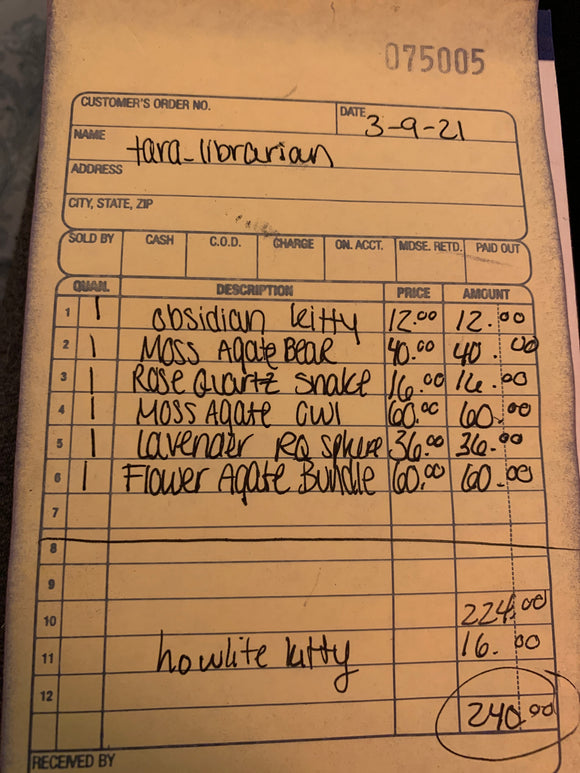 075005
CUSTOMER'S ORDER NO. DATE 3-9-21
NAME tara-librarian
ADDRESS
CITY, STATE, ZIP
SOLD BY CASH C.O.D. CHARGE ON. ACCT. MDSE. RETD. PAID OUT
QUAN. DESCRIPTION PRICE AMOUNT
1 1 obsidian kitty 12.00 12.00
2 1 Moss Agate Bear 40.00 40.00
3 1 Rose Quartz snake 16.00 16.00
4 1 Moss Agate owl 60.00 60.00
5 1 lavender RQ sphere 36.00 36.00
6 1 Flower Agate Bundle 60.00 60.00
7
8
9
10 224.00
11 howlite kitty 16.00
12
240.00
RECEIVED BY